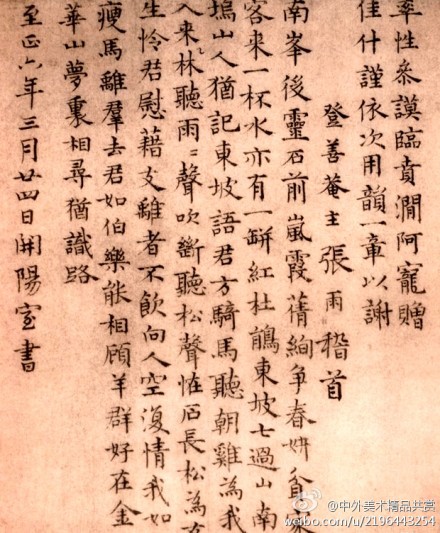 率性叅謨臨賁澗阿寵贈
佳什謹依次用韻一章以謝
登善菴主張雨稽首
南峯後靈石前嵐霞蒨絢争春妍貧家
客来一杯水亦有一缾紅杜鵑東坡七過山南
塢山人猶記東坡語君方騎馬聽朝雞為我
入来林聽雨聲吹斷聽松聲恠石長松為
生怜君慰藉支離者不飲向人空復情我如
瘦馬離羣去君如伯樂能相顧羊群好在金
華山夢裏相尋猶識路
至正六年三月廿四日開陽室書
@中外美术精品共赏
weibo.com/u/2196443254